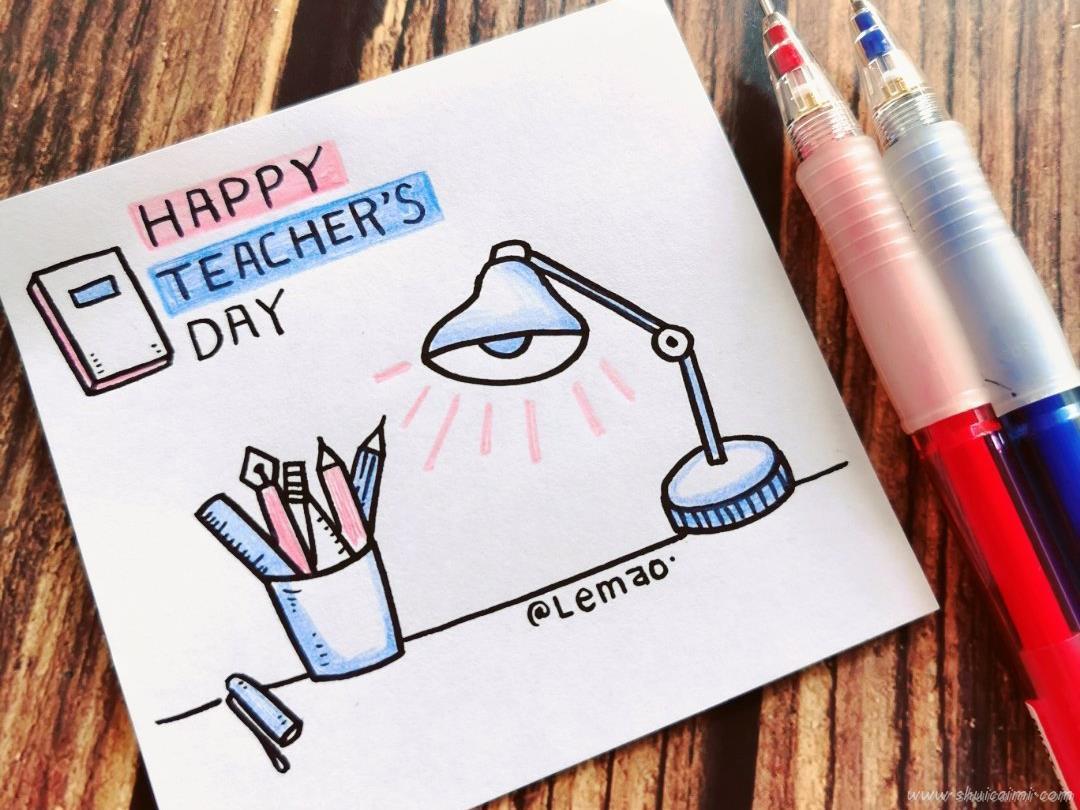 HAPPY
TEACHER'S
DAY
@Lemao.
www.shuicaimi.com